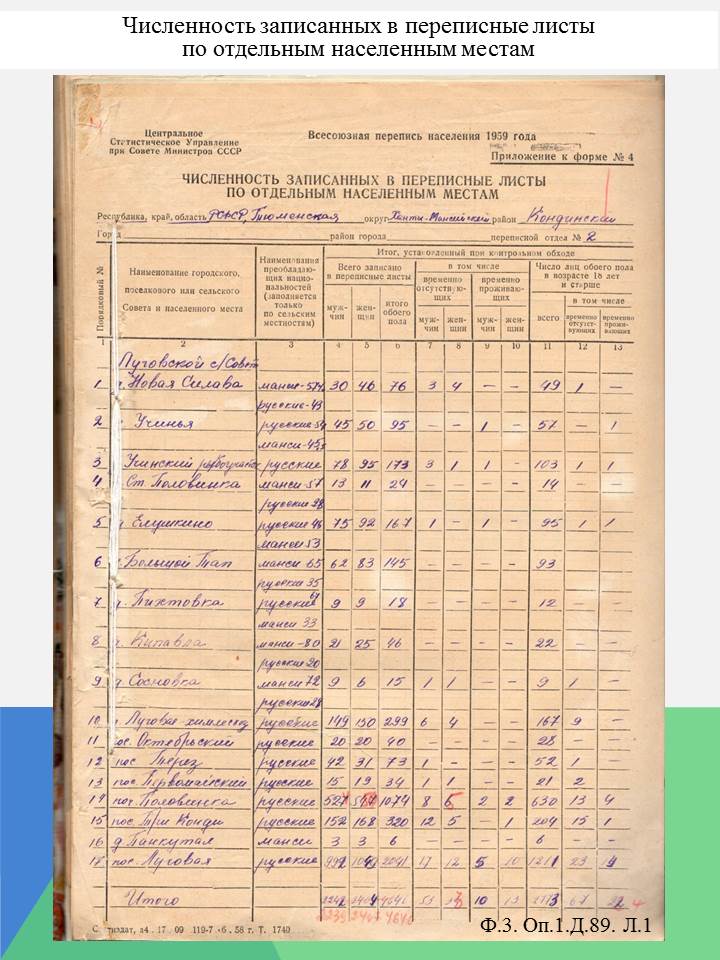 Численность записанных в переписные листы
по отдельным населенным местам
Центральное
Статистическое Управление
при Совете Министров СССР
Всесоюзная перепись населения 1959 года
Приложение к форме № 4
ЧИСЛЕННОСТЬ ЗАПИСАННЫХ В ПЕРЕПИСНЫЕ ЛИСТЫ
ПО ОТДЕЛЬНЫМ НАСЕЛЕННЫМ МЕСТАМ
Республика, край, область РСФСР, Тюменская округ Ханты-Мансийский район Кондинский
Город район города переписной отдел № 2
Порядковый №
Наименование городского, поселкового или сельского Совета и населенного места
Наименования преобладающих национальностей (заполняется только по сельским местностям)
Итог, установленный при контрольном обходе
Всего записано в переписные листы
в том числе
Число лиц обоего пола в возрасте 18 лет и старше
временно отсутствующих
временно проживающих
в том числе
мужчин женщин итого обоего пола мужчин женщин мужчин женщин всего временно отсутствующих временно проживающих
1 2 3 4 5 6 7 8 9 10 11 12 13
Луговской с/Совет
1 Новая Силава манси-57 30 46 76 3 4 - - 49 1 -
русские-43
2 Учинья русские 54 45 50 95 - - 1 - 57 - 1
манси-45
3 Учинский русские 78 95 173 3 1 1 - 103 1 1
4 Ст. Половинка манси-57 13 11 24 - - - - 14 - -
русские
5 Елушкино русские 46 75 92 167 1 - 1 - 95 1 1
манси 53
6 Большой Тап манси-65 62 83 145 - - - - 93
русские 35
7 д. Пихтовка русские 67 9 9 18 - - - - 12 - -
манси 33
8 д. манси-80 21 25 46 - - - - 22 - -
русские 20
9 д. Сосновка манси 72 9 6 15 1 1 - - 9 1 -
русские 28
10 Луговая русские 149 150 299 6 4 - - 167 9 -
11 пос. Октябрьский русские 20 20 40 - - - - 28 - -
12 пос. русские 42 31 73 1 - - - 52 1 -
13 пос. Первомайский русские 15 19 34 1 1 - - 21 2
14 пос. Половинка русские 527 547 1074 8 6 2 2 630 13 4
15 пос. Три Конди русские 152 168 320 12 5 - 1 204 15 1
16 д. Панкутал манси 3 3 6 - - - - 6 - -
17 пос. Луговая русские 992 2041 17 12 5 10 1211 23
Итого 53 10 67
2239 2407 4646
Ф.3. Оп.1.Д.89. Л.1